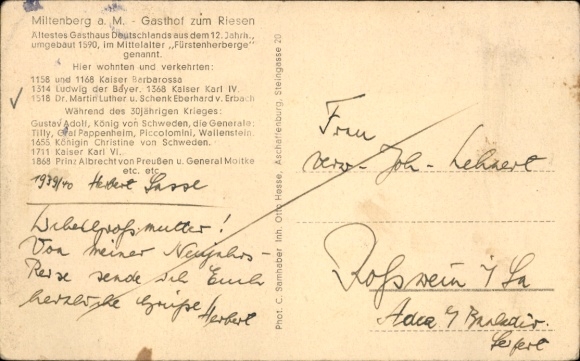 Miltenberg a. M. - Gasthof zum Riesen
Ältestes Gasthaus Deutschlands aus dem 12. Jahrh.,
umgebaut 1590, im Mittelalter „Fürstenherberge"
genannt.
Hier wohnten und verkehrten:
1158 und 1168 Kaiser Barbarossa
1314 Ludwig der Bayer, 1368 Kaiser Karl IV.
1518 Dr. Martin Luther u. Schenk Eberhard v. Erbach
Während des 30jährigen Krieges:
Gustav Adolf, König von Schweden, die Generale:
Tilly, Graf Pappenheim, Piccolomini, Wallenstein.
1655 Königin Christine von Schweden.
1711 Kaiser Karl VI.
1868 Prinz Albrecht von Preußen u. General Moltke
etc. etc.
1939/40 Herbert Sasse
Liebe Großmutter!
Von meiner Neujahrs-
Reise sende ich Euch
herzliche Grüße
Herbert
Phot. C. Samhaber Inh. Otto Hesse, Aschaffenburg, Steingasse 20
Frau
verw. Joh. Lehnert
Roßwein i/Sa
Seifert